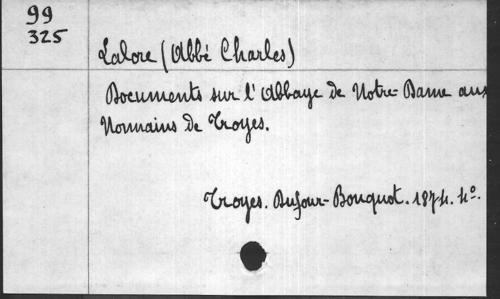 99
325
Lalore (Abbé Charles)
Documents sur l'Abbaye de Notre-Dame aux
Nonnains de Troyes.
Troyes. Dufour-Bouquot. 1874. 4º.